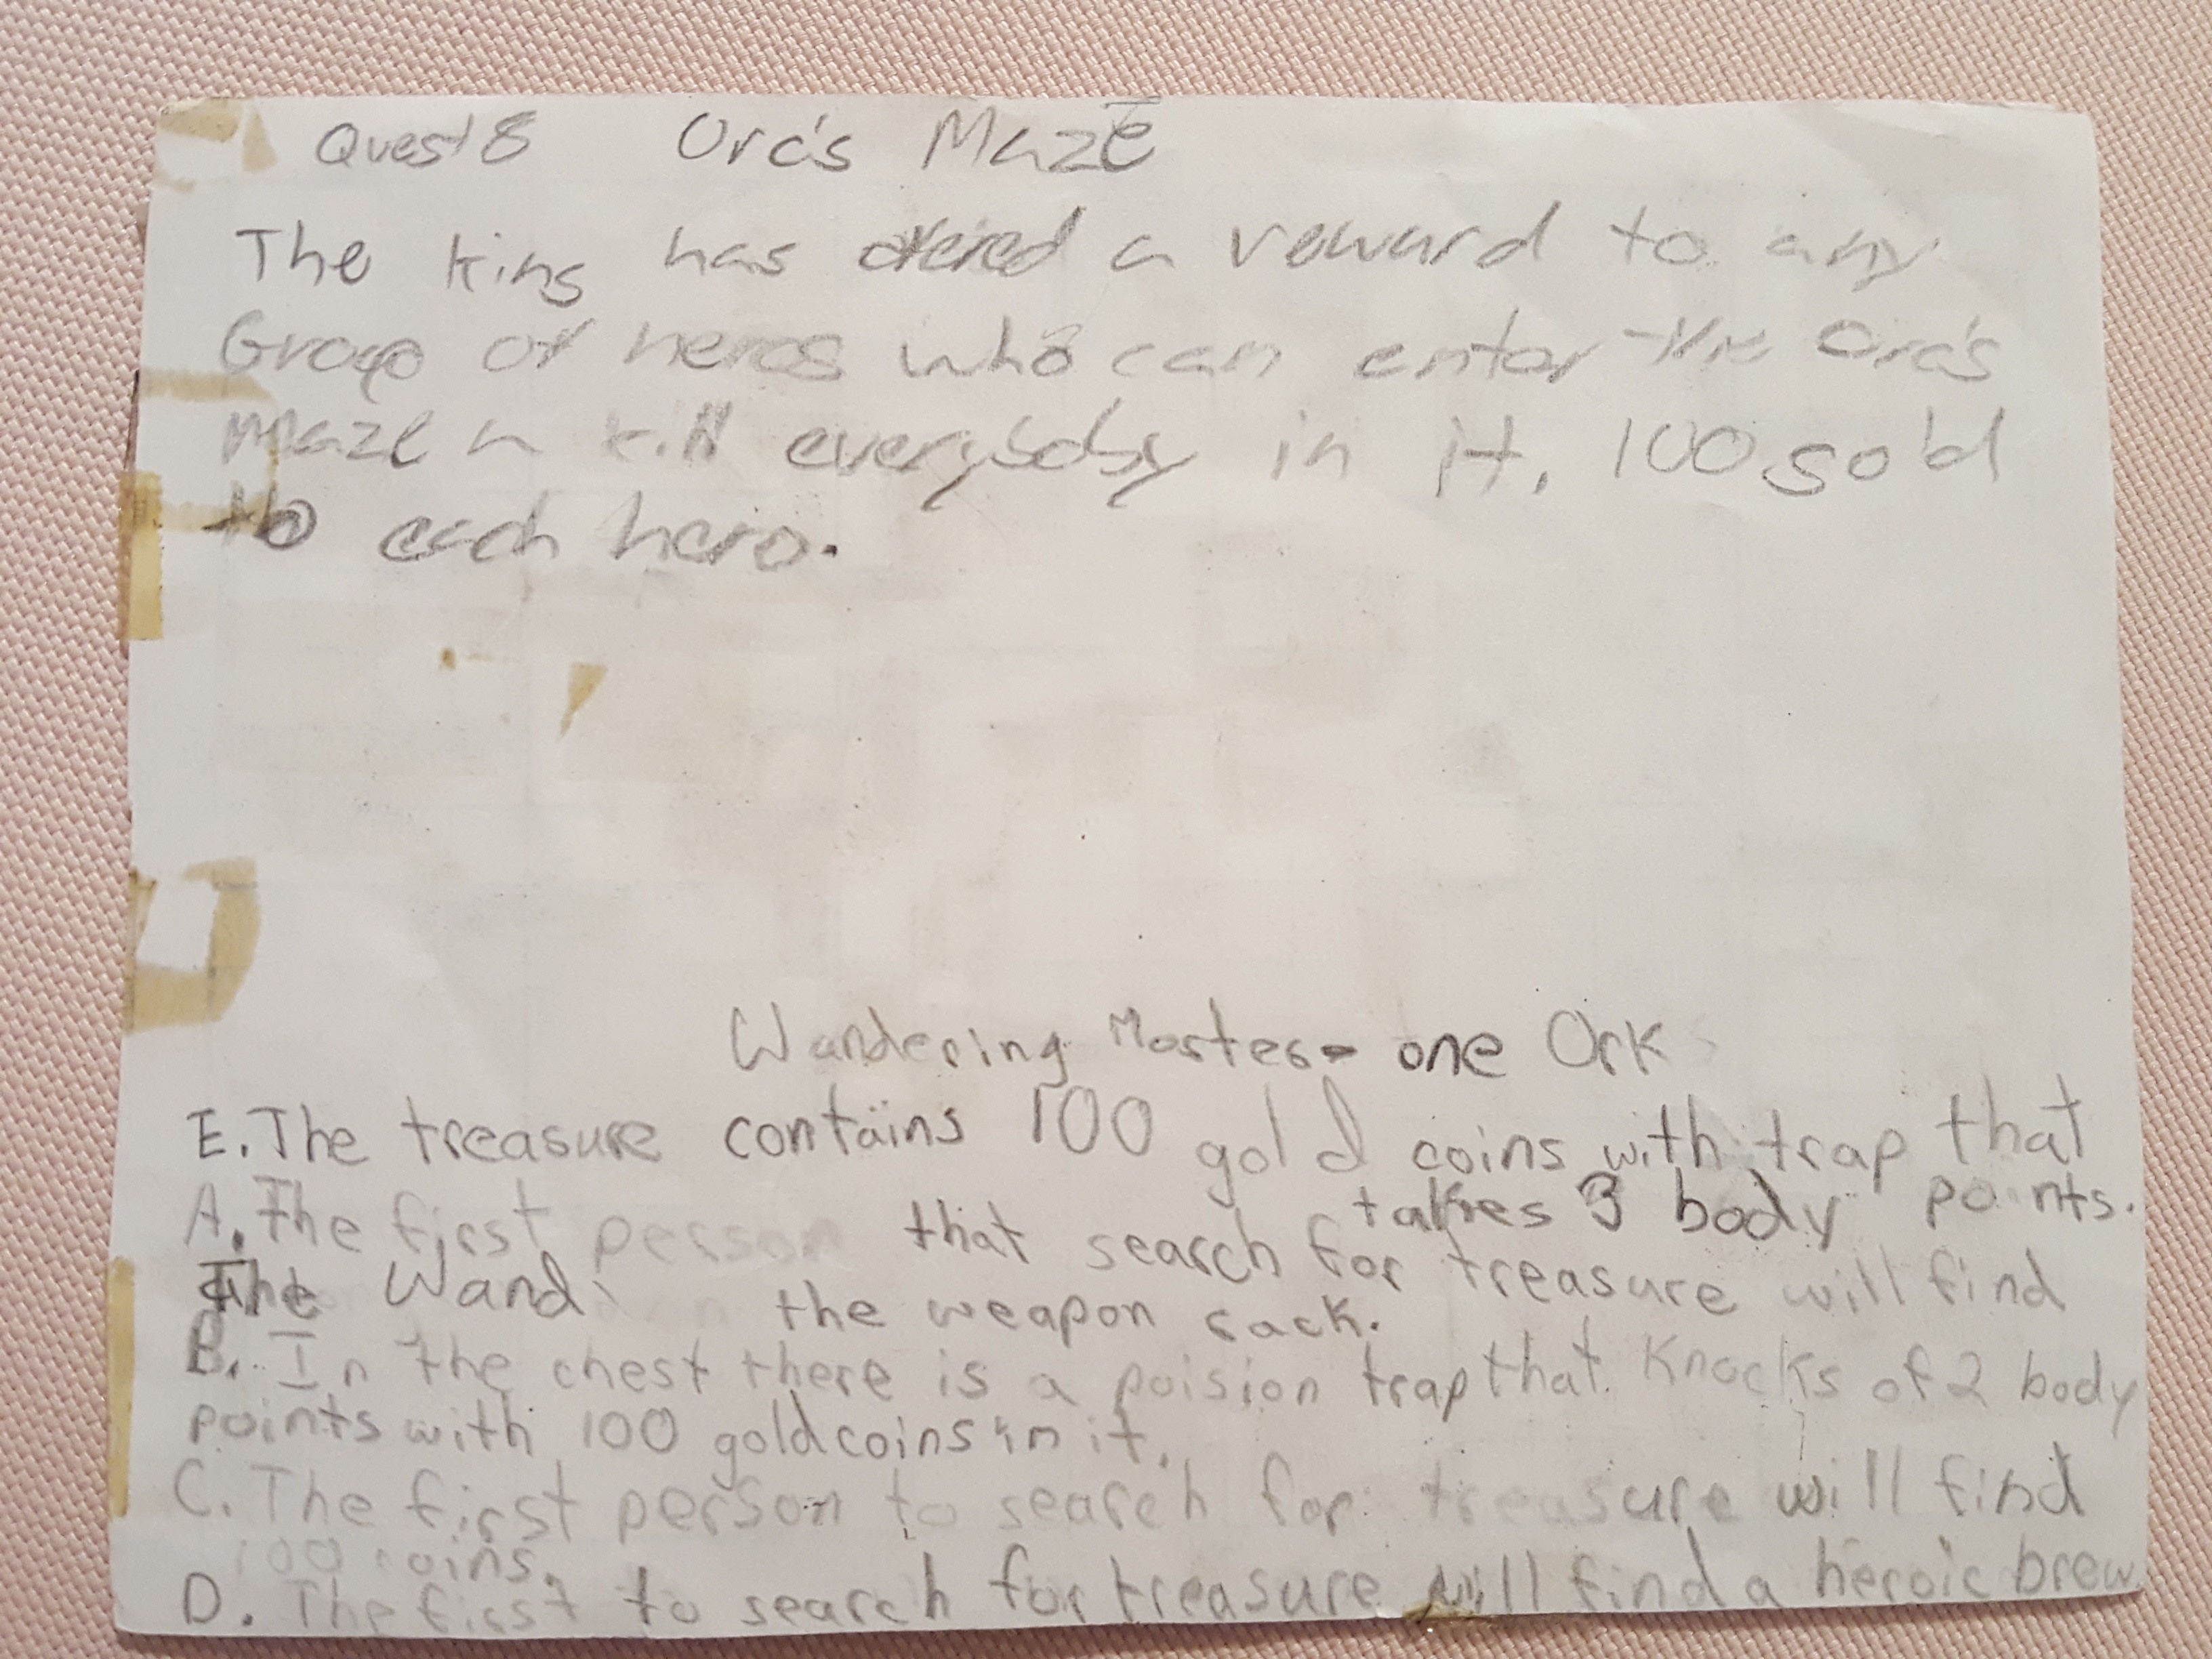 Quest 8 Orc's Maze
The King has offered a reward to any
Group of heros who can enter the Orc's
Maze n kill everybody in it, 100 gold
to each hero.
Wandering Monster - one Ork
E. The treasure contains 100 gold coins with trap that
takes 3 body points.
A. The first person that search for treasure will find
The Wand the weapon rack.
B. In the chest there is a poision trap that Knocks of 2 body
points with 100 gold coins in it.
C. The first person to search for treasure will find
100 coins.
D. The first to search for treasure will find a heroic brew